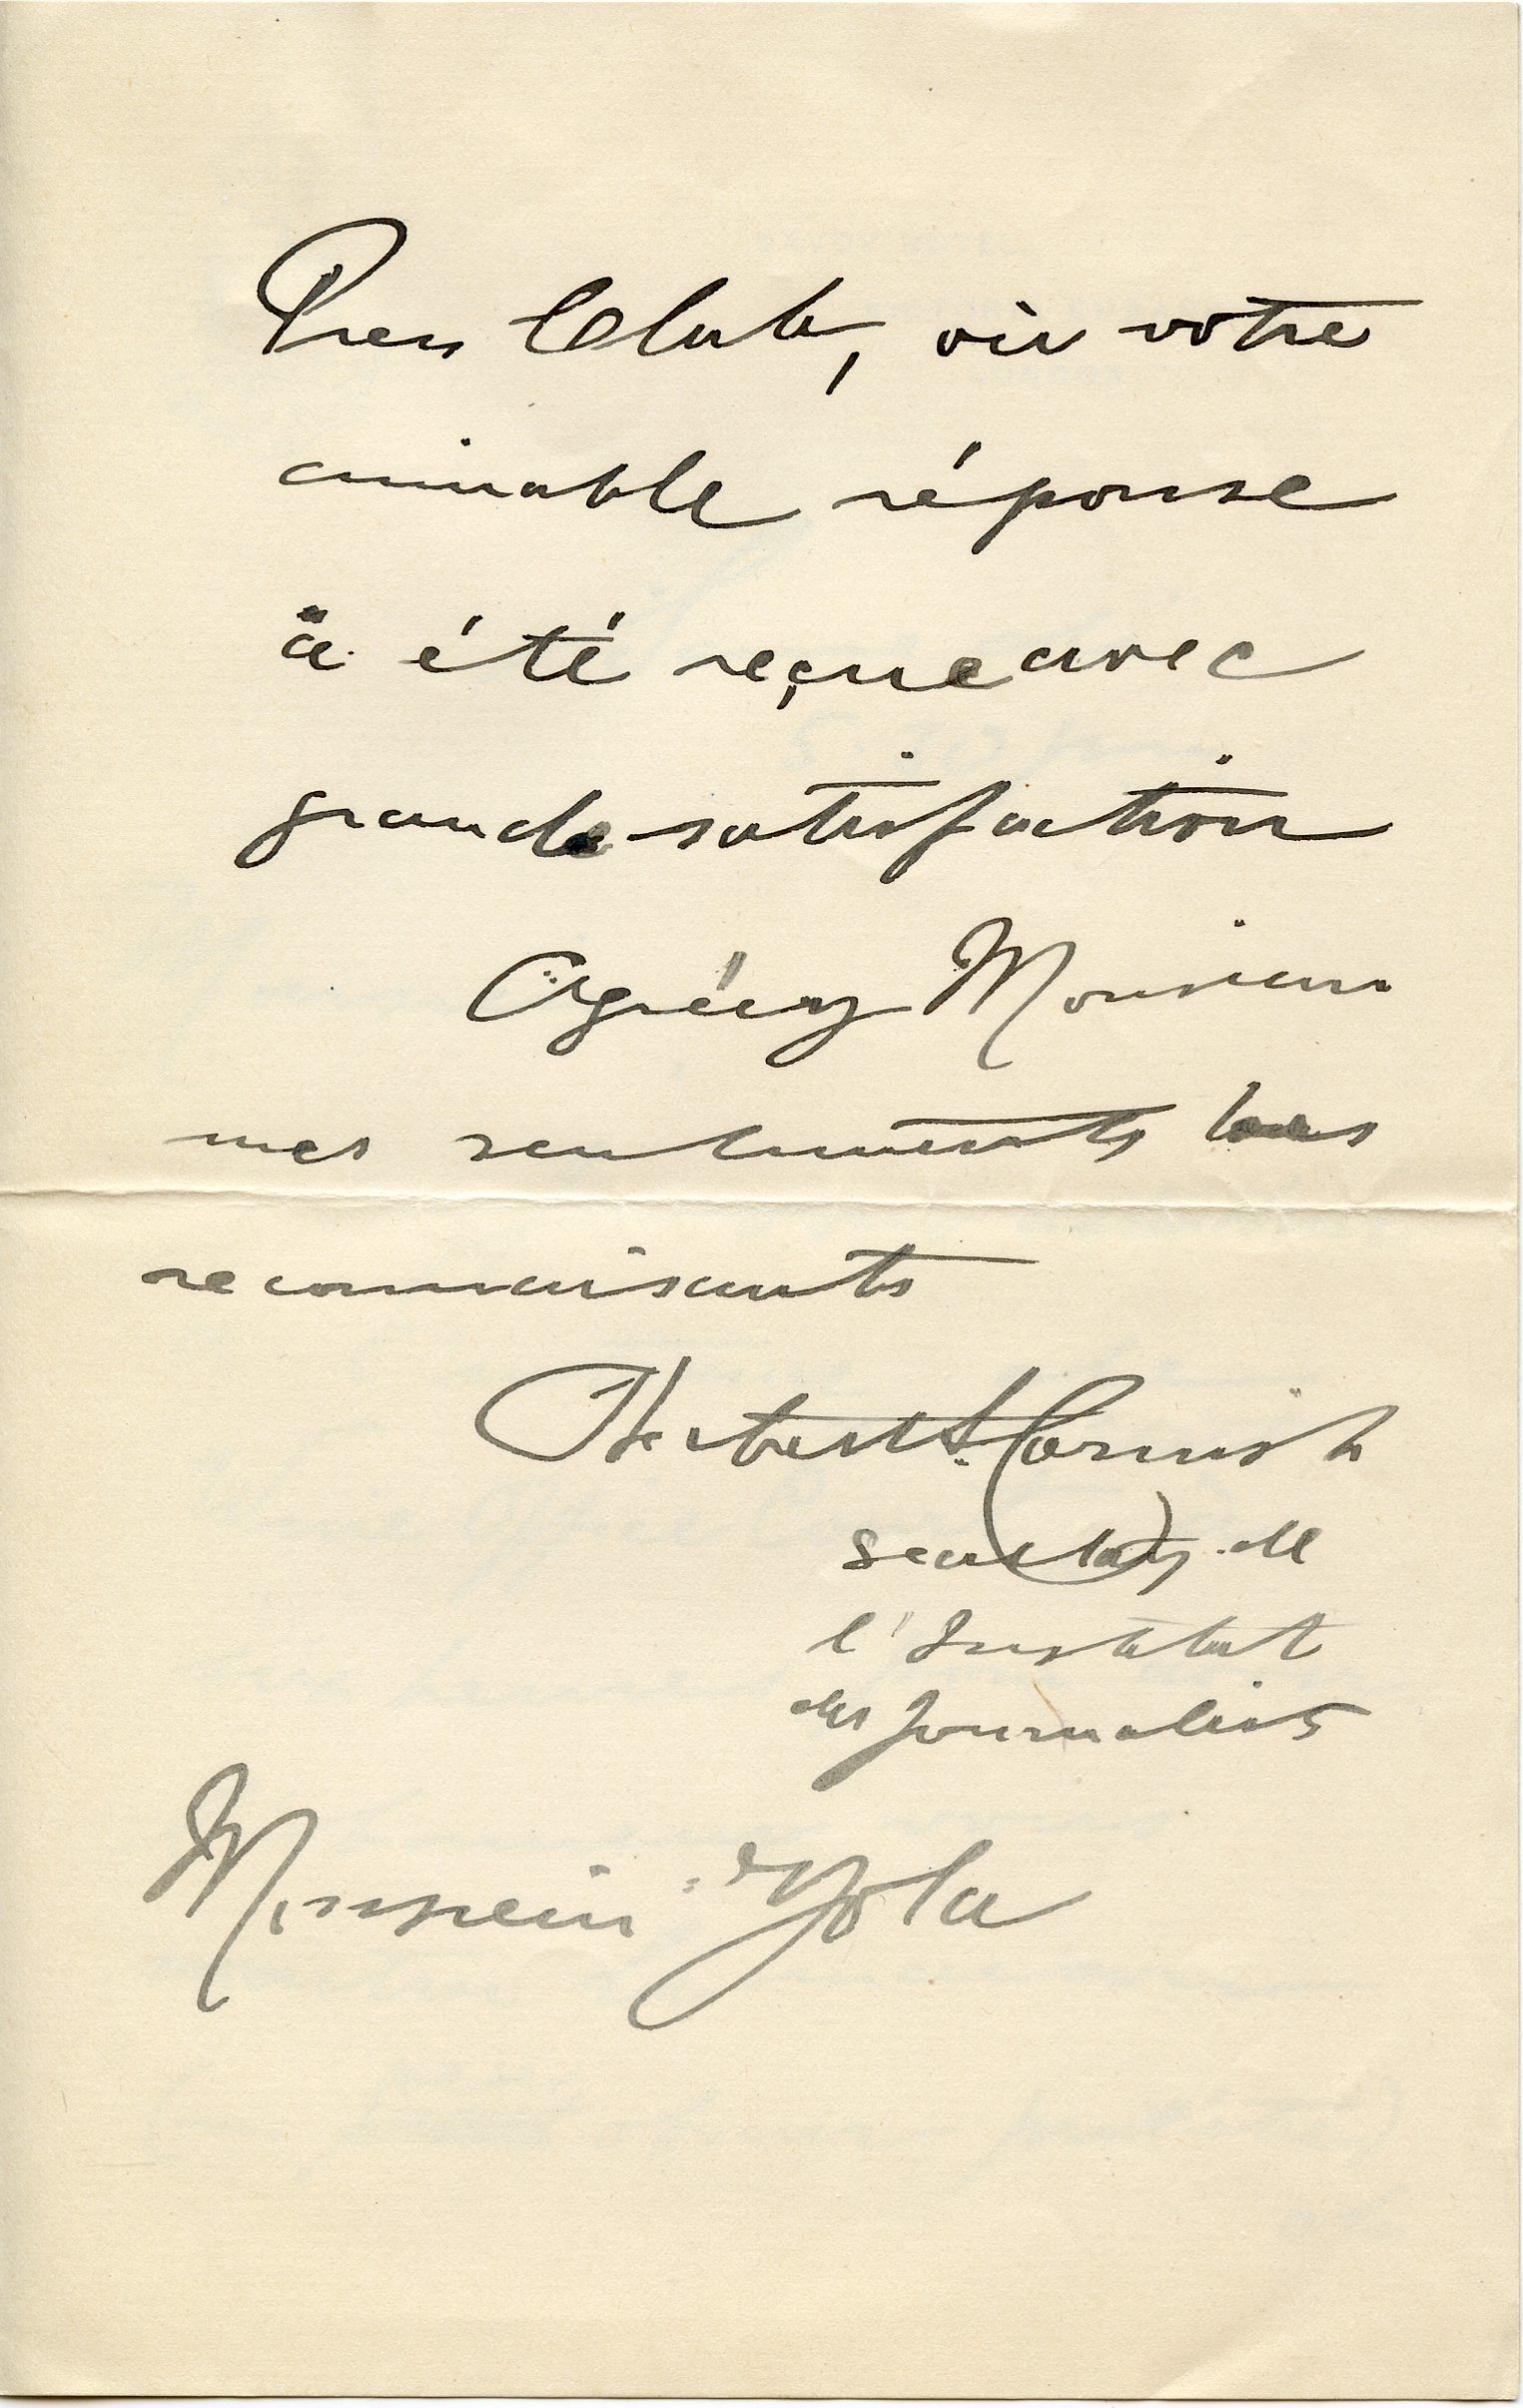 Press Club, où votre
aimable réponse
à été reçue avec
grande satisfaction
Agréez Monsieur
mes sentiments les
reconnaisants
Herbert Cornish
de
l'Institut
des Journalists
Monsieur Zola